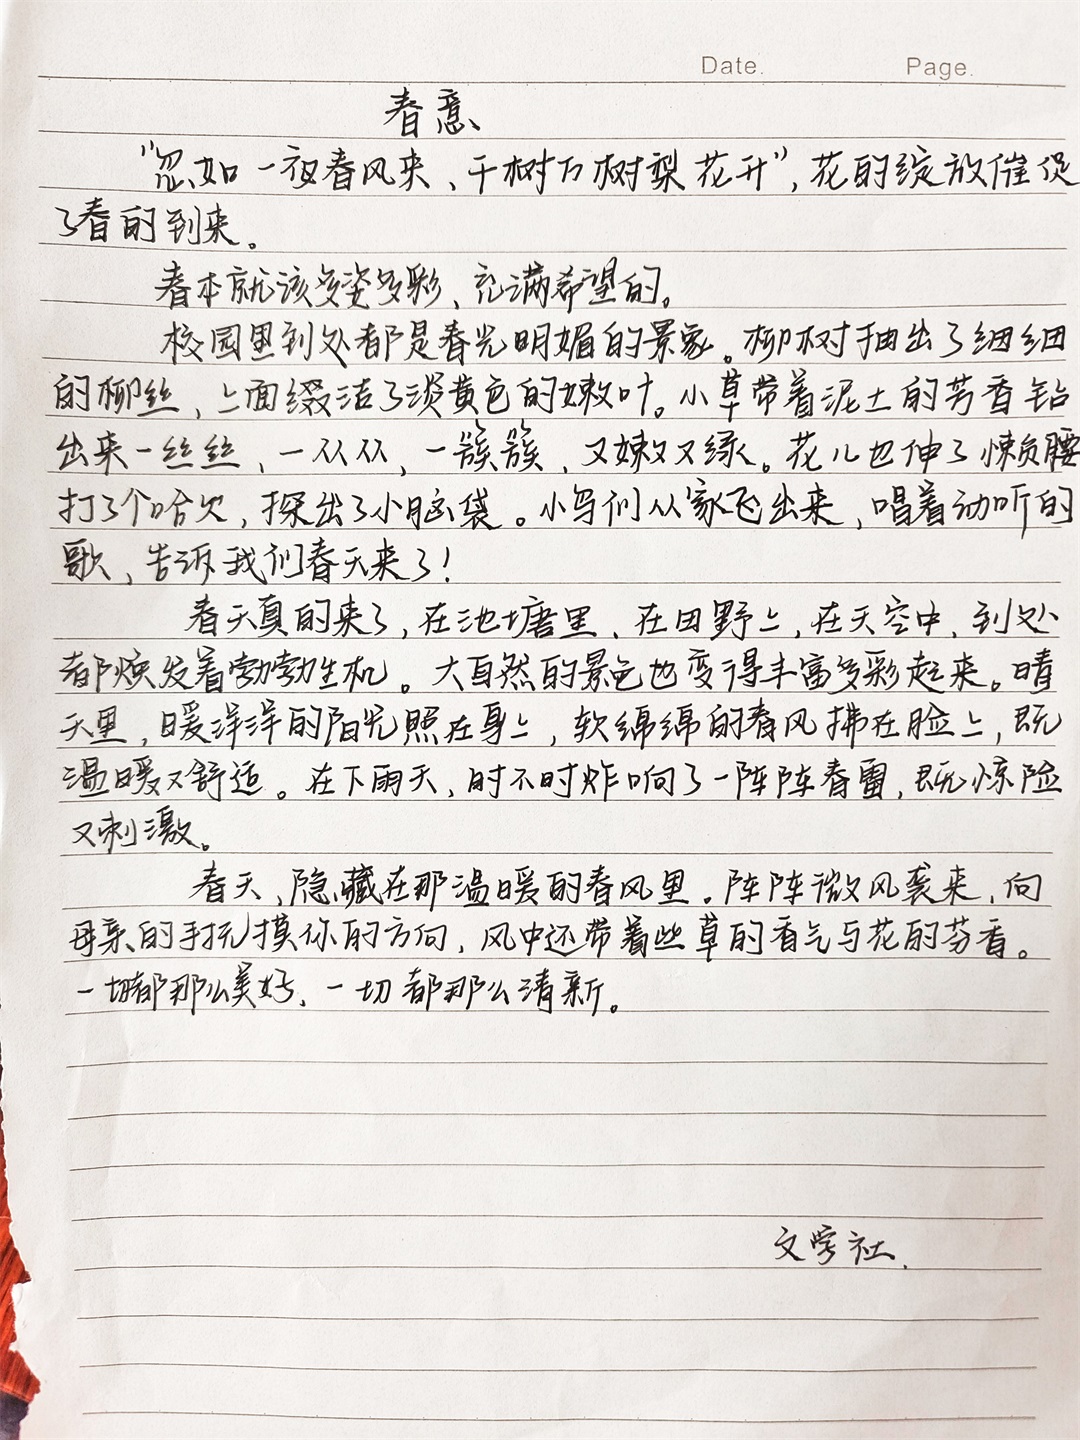 Date.
Page.
春意
"忽如一夜春风来、千树万树梨花开",花的绽放催促
了春的到来。
春本就该多姿多彩、充满希望的。
校园里到处都是春光明媚的景象。柳树抽出了细细
的柳丝,上面缀沾了淡黄色的嫩叶。小草带着泥土的芳香钻
出来一丝丝,一从从,一簇簇,又嫩又绿。花儿也伸了懒腰
打了个哈欠,探出了小脑袋。小鸟们从家飞出来,唱着动听的
歌,告诉我们春天来了!
春天真的来了,在池塘里、在田野上,在天空中,到处
都焕发着勃勃生机。大自然的景色也变得丰富多彩起来。晴
天里,暖洋洋的阳光照在身上,软绵绵的春风拂在脸上,既
温暖又舒适。在下雨天,时不时炸响了一阵阵春雷,既惊险
又刺激。
春天,隐藏在那温暖的春风里。阵阵微风袭来,向
母亲的手抚摸你的方向,风中还带着些草的香气与花的芬香。
一切都那么美好、一切都那么清新。
文学社.